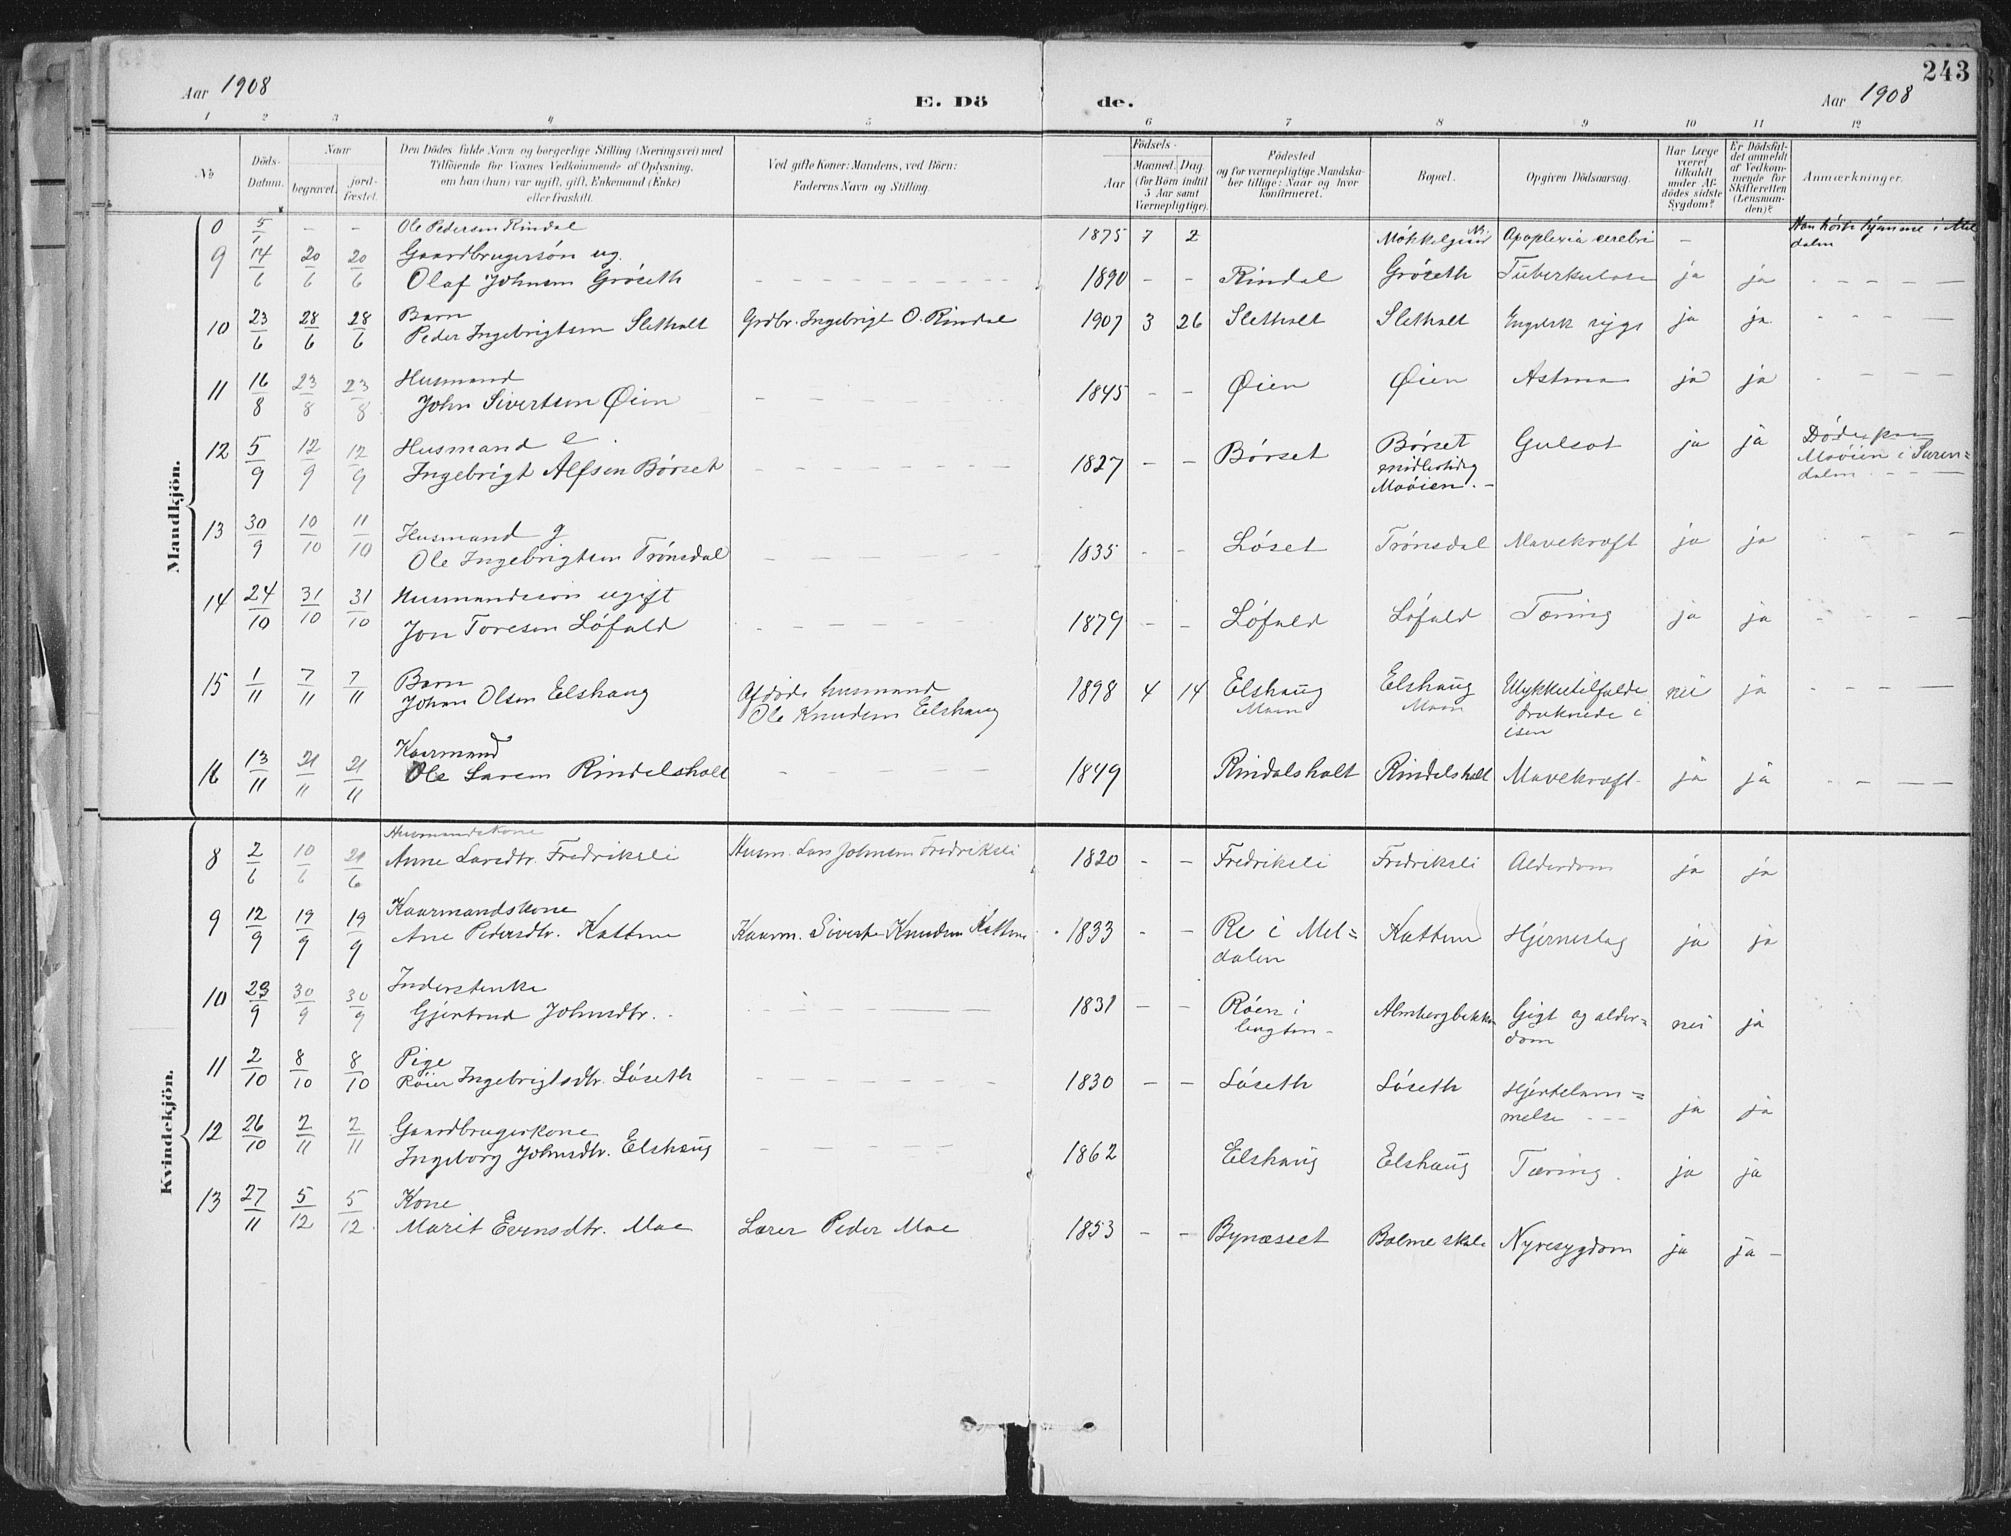 243
Aar 1908
E. Dö
de.
Aar 1908
1 2 3 4 5 6 7 8 9 10 11 12
No
Döds-
Datum.
Naar
begravet.
jord-
fæstet.
Den Dödes fulde Navn og borgerlige Stilling (Næringsvei) med
Tilföiende for Voxnes Vedkommende af Oplysning,
om han (hun) var ugift, gift, Enkemand (Enke)
eller fraskilt.
Ved gifte Koner: Mandens, ved Börn:
Faderens Navn og Stilling.
Födsels-
Aar
Maaned. Dag
(for Börn indtil
5 Aar samt
Værnepligtige).
Födested
og for værnepligtige Mandska-
ber tillige: Naar og hvor
konfirmeret.
Bopæl.
Opgiven Dödsaarsag.
Har Læge
været
tilkaldt
under Af-
dödes sidste
Sygdom?
Er Dödsfal-
det anmeldt
af Vedkom-
mende for
Skifteretten
(Lensman-
den)?
Anmærkninger.
Mandkjön.
0 5/1 - - Ole Pedersen Rindal 1875 7 2 Apoplexia cerebri - Han hörte hjemme i Mel
dalen
9 14/6 20/6 20/6 Gaardbrugersøn ug.
Olaf Johnsen Grøseth 1890 - - Rindal Grøseth Tüberkulose ja ja
10 23/6 28/6 28/6 Barn
Peder Ingebrigtsen Sletholt Grdbr. Ingebrigt O. Rindal 1907 3 26 Sletholt Sletholt Engelsk syge ja ja
11 16/8 23/8 23/8 Husmand
John Sivertsen Øien 1845 - - Øien Øien Astma ja ja
12 5/9 12/9 12/9 Husmand e.
Ingebrigt Alfsen Børset 1827 - - Børset Børset
midlertidig
Moøien. - Gulsot ja ja Døde paa
Moøien i Suren=
dalen
13 30/9 10/10 11/10 Husmand g
Ole Ingebrigtsen Trønsdal 1835 - - Løset Trønsdal Mavekræft ja ja
14 24/10 31/10 31/10 Husmandssøn ugift
Jon Toresen Løfald 1879 - - Løfald Løfald Tæring ja ja
15 1/11 7/11 7/11 Barn
Johan Olsen Elshaug Afdøde husmand
Ole Knudsen Elshaug 1898 4 14 Elshaüg
Moen Elshaüg
Moen Ulykkestilfælde
druknede i
isen nei ja
16 13/11 21/11 21/11 Kaarmand
Ole Larsen Rindalsholt 1849 Rindalsholt Rindalsholt Mavekræft ja ja
Kvindekjön.
8 2/6 10/6 21/6 Husmandskone
Anne Larsdtr. Fredriksli Husm. Lars Johnsen Fredriksli 1820 - - Fredriksli Fredriksli Alderdom ja ja
9 12/9 19/9 19/9 Kaarmandskone
Ane Pedersdtr. Kattem Kaarm. Sivert Knudsen Kattem 1833 - - Re i Mel=
dalen Kattem Hjerneslag ja ja
10 23/9 30/9 30/9 Inderstenke
Gjertrud Johnsdtr. 1831 - - Røen i
Almbergbekken Gigt og alder=
dom nei ja
11 2/10 8/10 8/10 Pige
Ingebrigtsdtr. Løseth 1830 - - Løseth Løseth Hjertelam=
melse ja ja
12 26/10 2/11 2/11 Gaardbrugerkone
Ingeborg Johnsdtr. Elshaüg 1862 Elshaug Elshaüg Tæring. ja ja
13 27/11 5/12 5/12 Kone
Marit Evensdtr. Moe Lærer Peder Moe 1853 - - Bynæsset Bolme skole Nyresygdom ja ja -